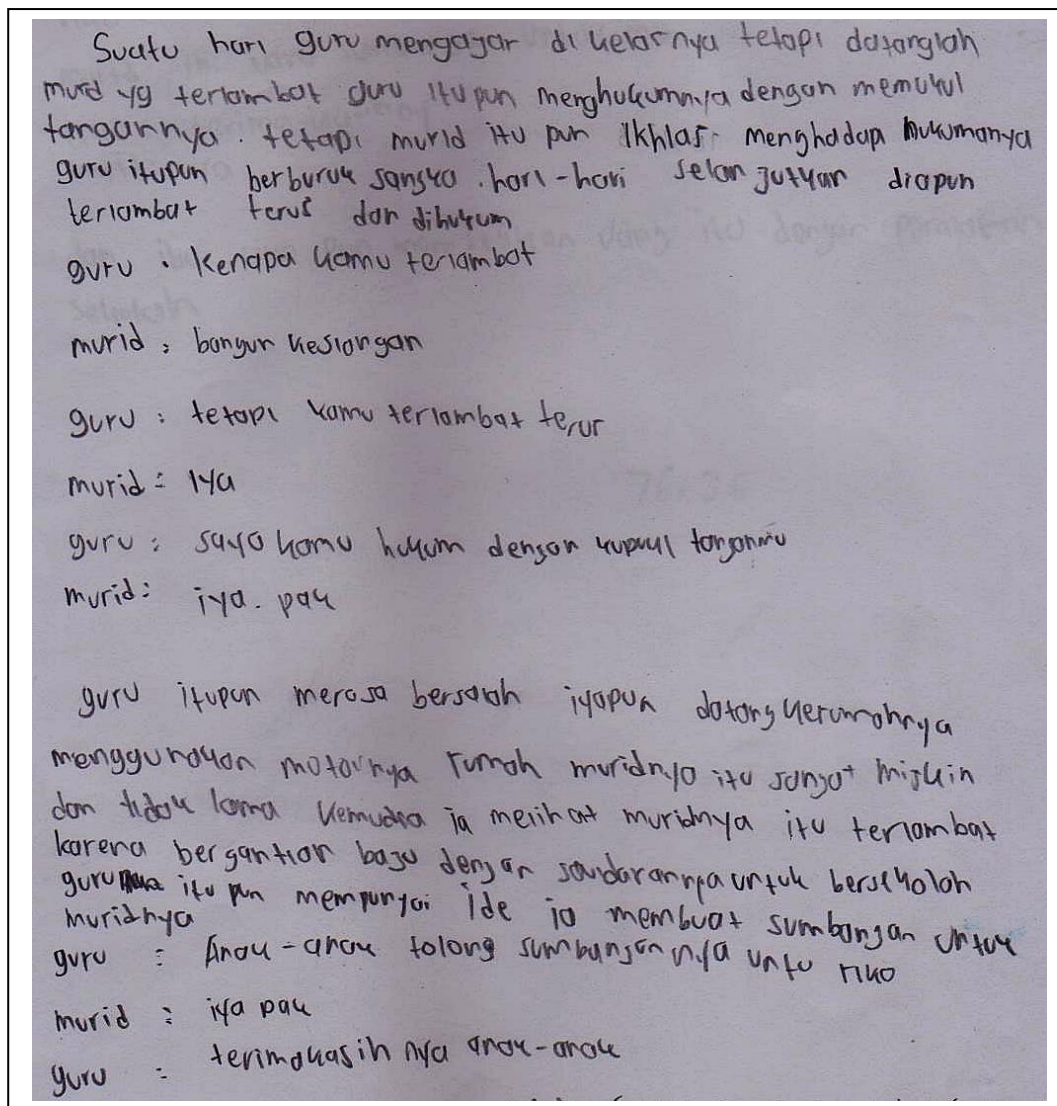 Suatu hari guru mengajar di kelasnya tetapi datanglah
murd yg terlambat guru itupun menghukumnya dengan memukul
tangannya. tetapi murid itu pun ikhlas menghadap hukumanya
guru itupun berburuk sangka. hari-hari selanjutkan diapun
terlambat terus dan dihukum
guru : Kenapa kamu terlambat
murid : bangun kesiangan
guru : tetapi kamu terlambat terus
murid : iya
guru : saya kamu hukum dengan tanganmu
murid : iya. pak
guru itupun merasa bersalah iyapun datang kerumahnya
menggunakan motornya rumah muridnya itu sangat miskin
dan tidak lama kemudia ia melihat muridnya itu terlambat
karena bergantian baju dengan saudarannya untuk bersekolah
guru itu pun mempunyai ide ia membuat sumbangan untuk
muridnya
guru : Anak-anak tolong sumbangannya untu riko
murid : iya pak
guru : terimakasih nya anak-anak